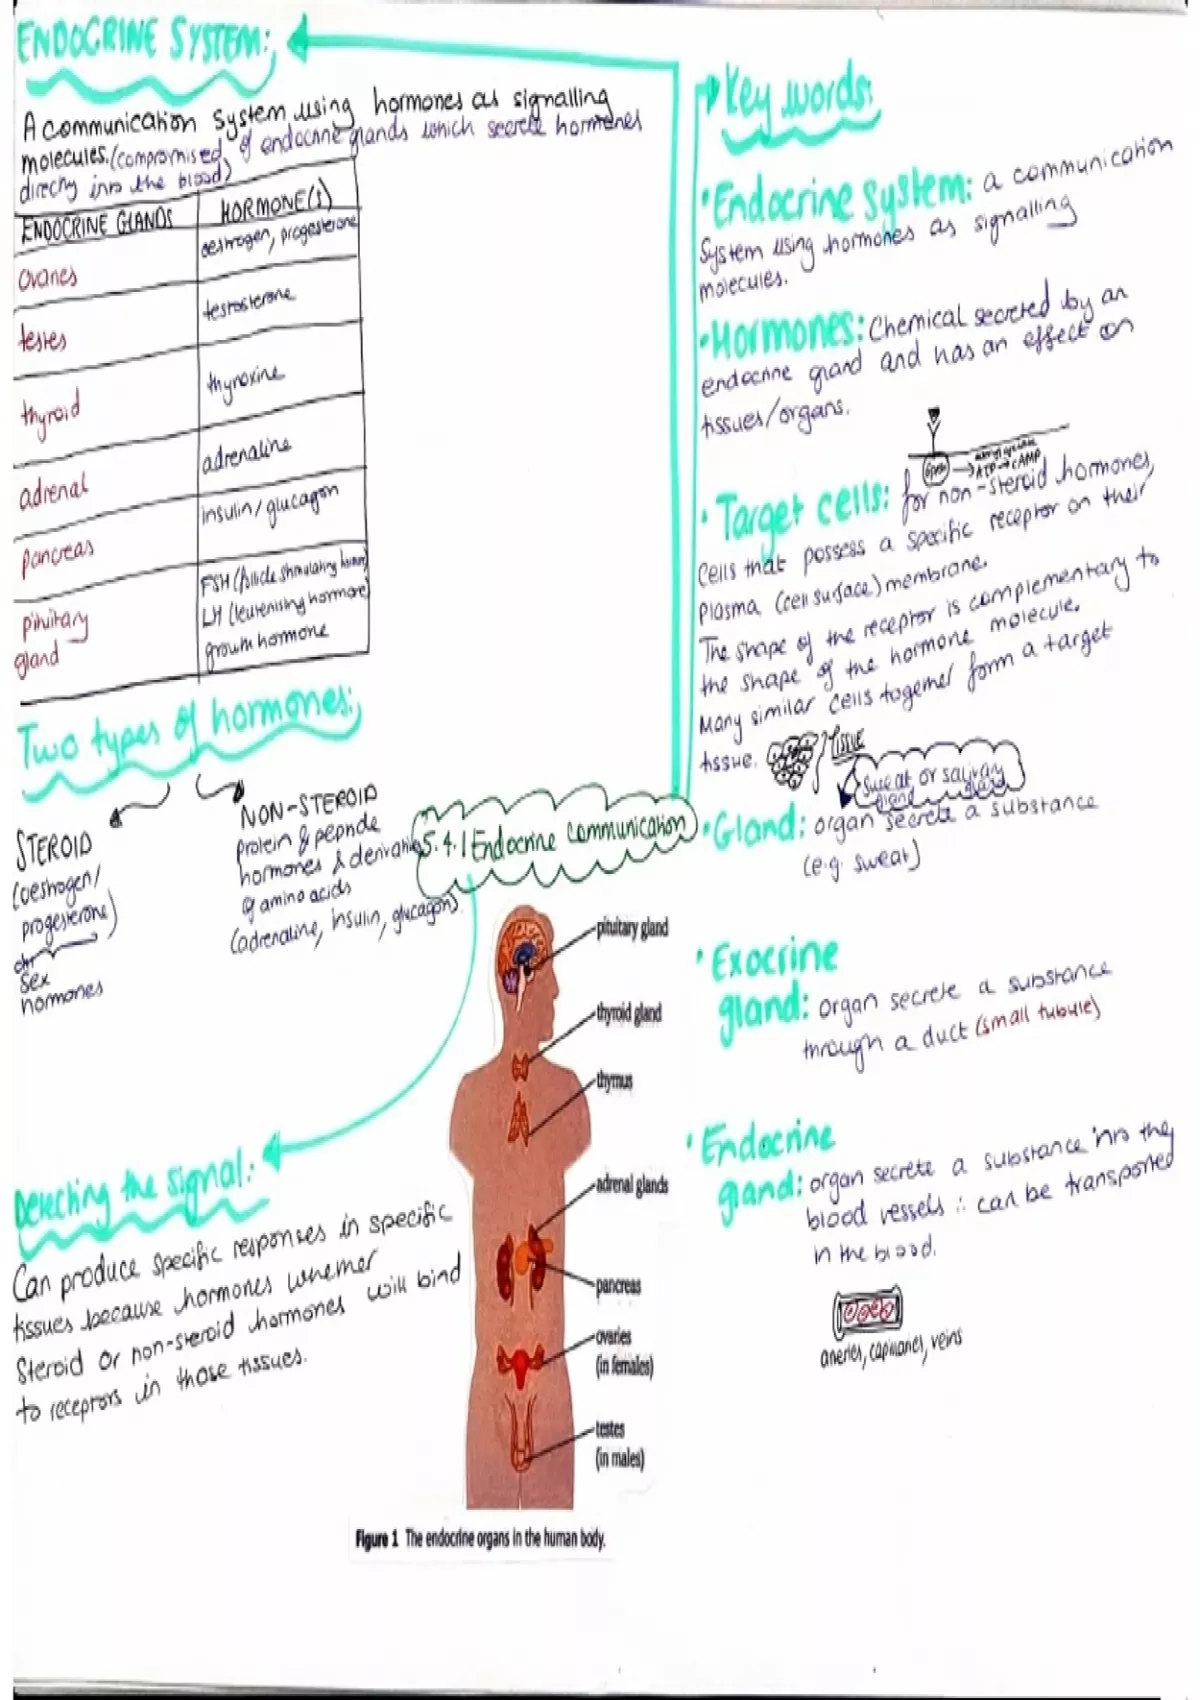 ENDOCRINE SYSTEM:
A communication system using hormones as signalling
molecules. (compromised of endocrine glands which secrete hormones
directly into the blood)
ENDOCRINE GLANDS HORMONE(S)
ovaries oestrogen, progesterone
testes testosterone
thyroid thyroxine
adrenal adrenaline
pancreas insulin/glucagon
pituitary gland FSH (follicle stimulating hormone)
LH (leutenising hormone)
growth hormone
Two types of hormones:
STEROID
(oestrogen/
progesterone)
sex
hormones
NON-STEROID
protein & peptide
hormones & derivatives
of amino acids
(adrenaline, insulin, glucagon)
5.4.1 Endocrine communication
Detecting the signal:
Can produce specific responses in specific
tissues because hormones whether
Steroid or non-steroid hormones will bind
to receptors in those tissues.
pituitary gland
thyroid gland
thymus
adrenal glands
pancreas
ovaries
(in females)
testes
(in males)
Figure 1 The endocrine organs in the human body.
Key words:
• Endocrine system: a communication
System using hormones as signalling
molecules.
• Hormones: Chemical secreted by an
endocrine gland and has an effect on
tissues/organs.
ATP → cAMP
• Target cells: for non-steroid hormones,
Cells that possess a specific receptor on their
plasma (cell surface) membrane.
The shape of the receptor is complementary to
the shape of the hormone molecule.
Many similar cells together form a target
tissue.
TISSUE
sweat or salivary
gland gland
• Gland: organ secrete a substance
(e.g. sweat)
• Exocrine
gland: organ secrete a substance
through a duct (small tubule)
• Endocrine
gland: organ secrete a substance into the
blood vessels ∴ can be transported
in the blood.
arteries, capillaries, veins